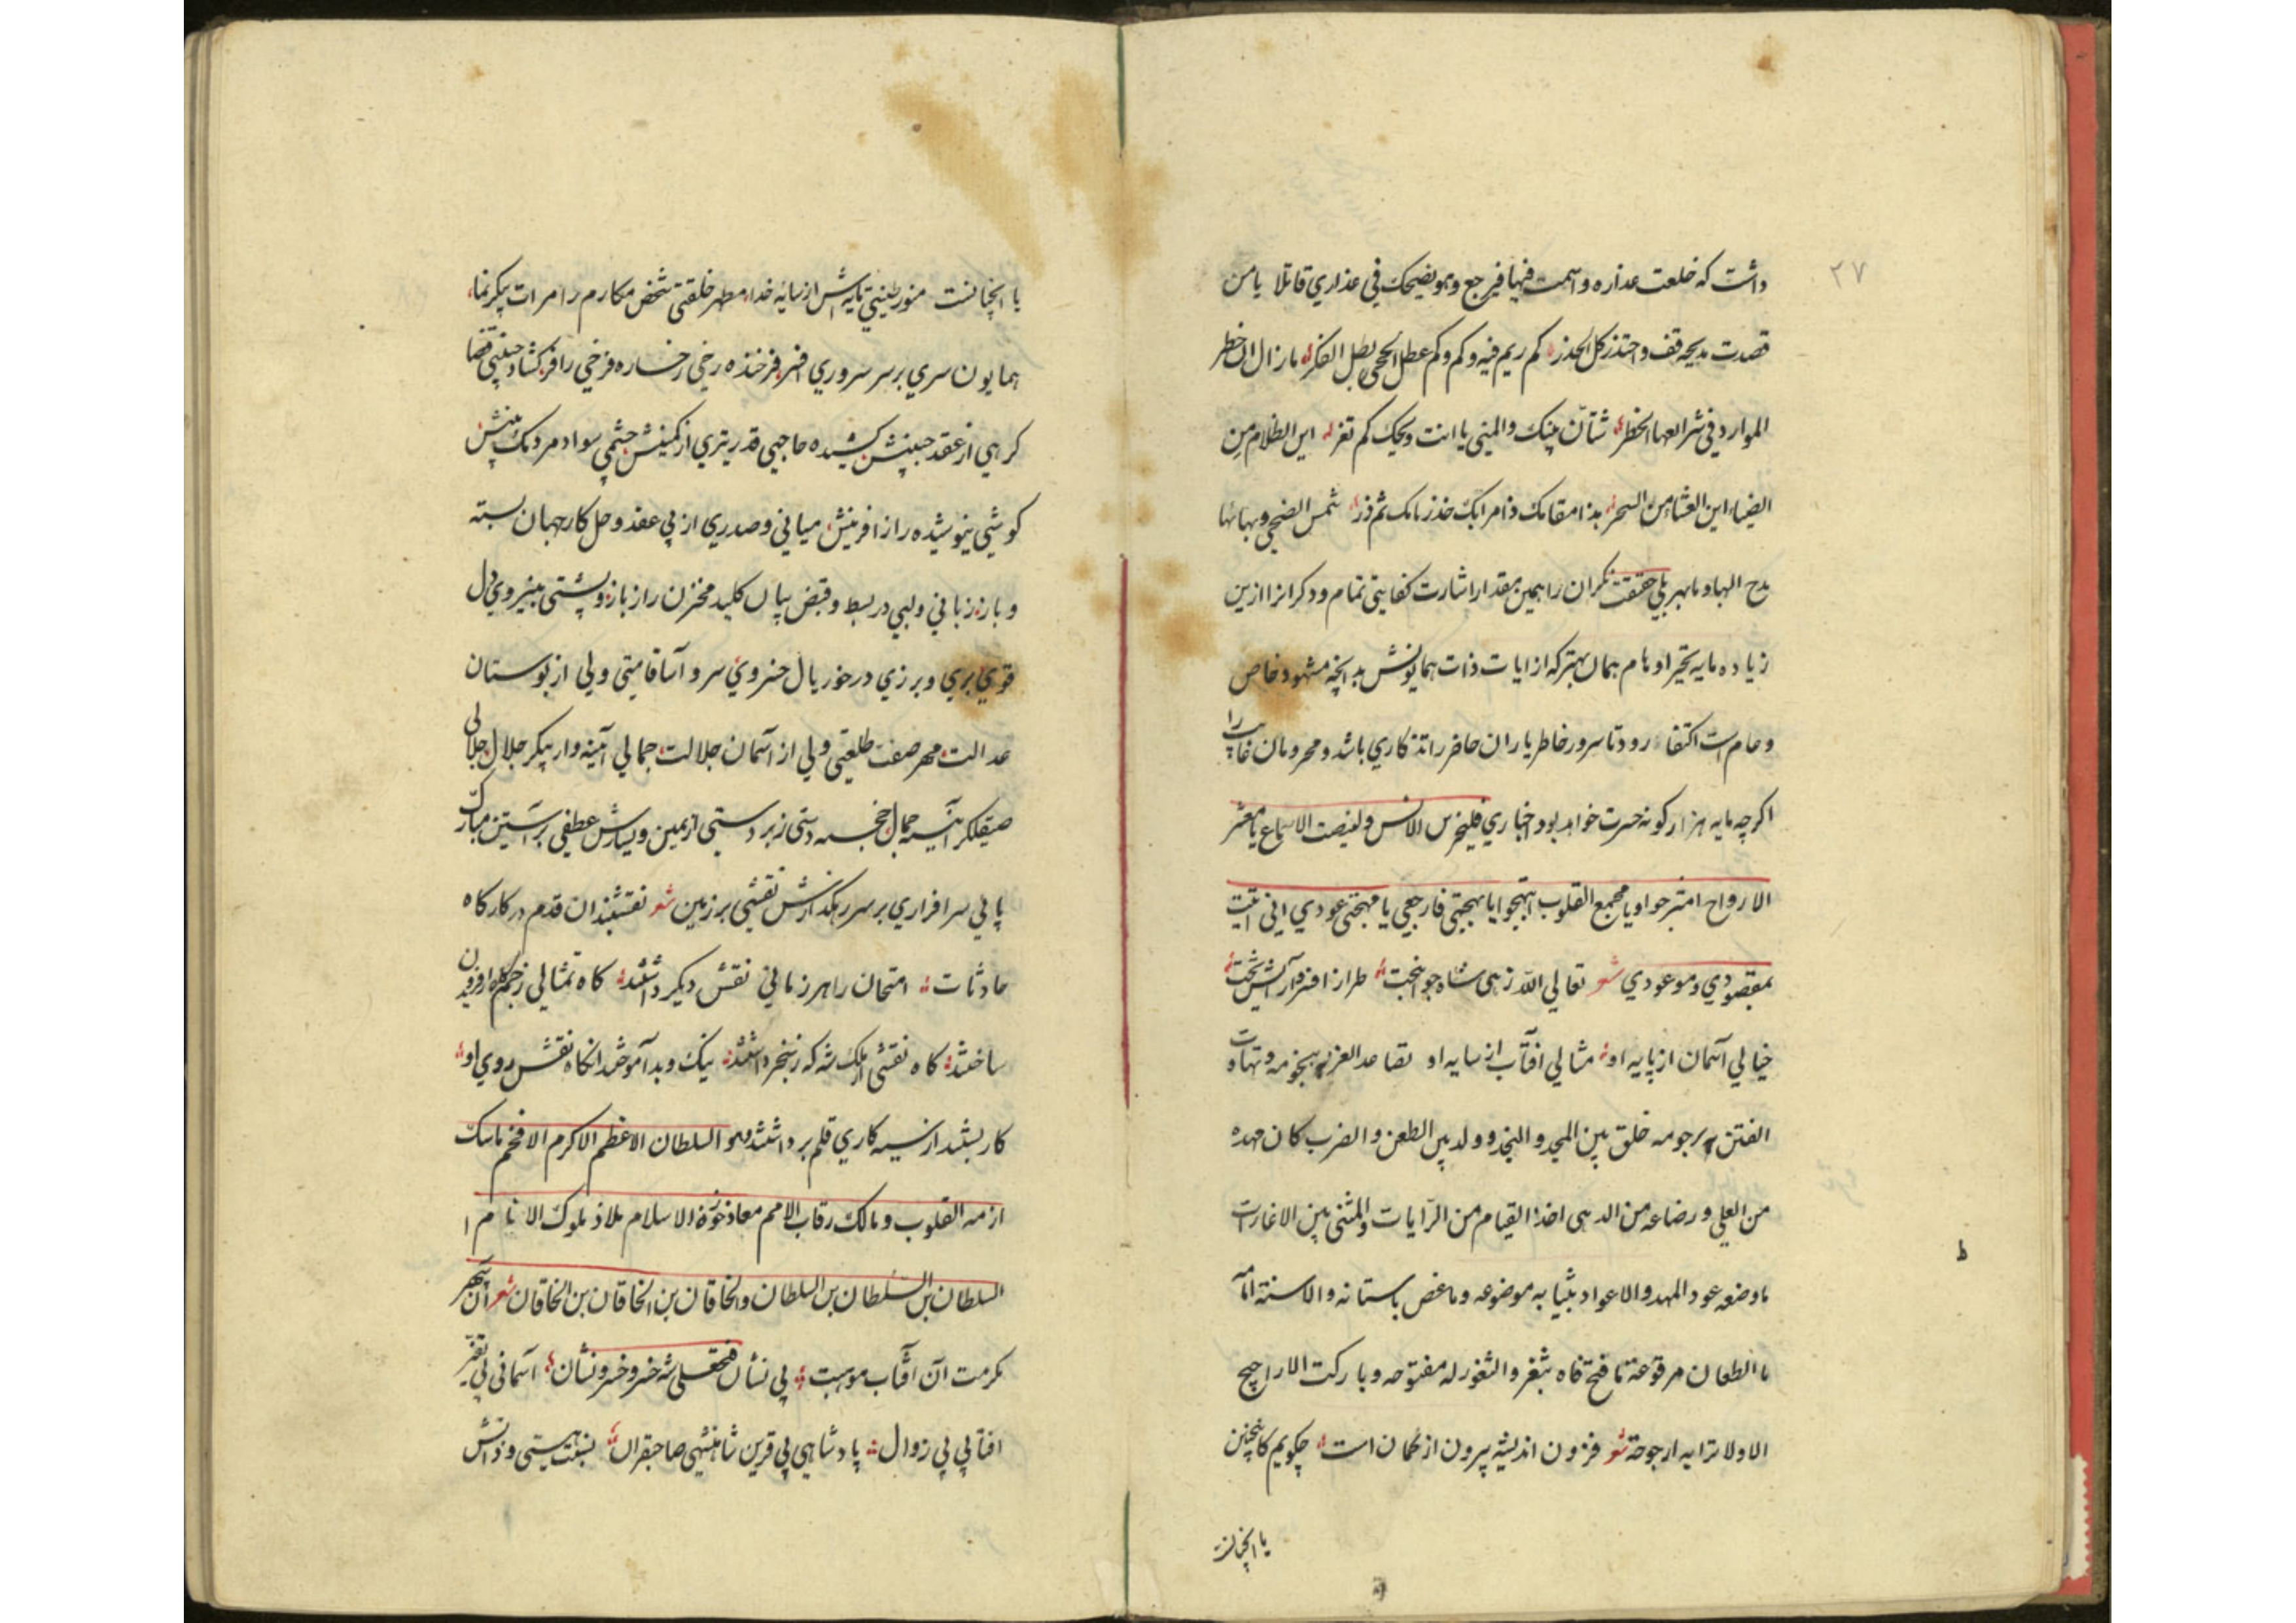 ۲۷
داشت که خلعت عذاره واسمت فیها فیرجع وهو یضحک فی عذاری قائلا یا من
قصدت مدیحه قف واحتذر کل الحذر کم ریم فیه وکم وکم عطل الحجی بطل الفکر ما زال ان خطر
الموارد فی شرایعها الخطر شتان بینک والمنی یا انت ویحک کم تغر این الظلام من
الضیاء این العشا من السحر هذا مقامک ذا مرامک خذ زمامک ثم ذر شمس الضحی وبهائها
مدح البها وما بهر بلی حقیقت نگران را همین مقدار اشارت کفایتی تمام ودگرانرا ازین
زیاده مایه تحیر اوهام همان بهتر که از ایات ذات همایونش بدانچه مشهود خاص
وعام است اکتفا رود تا سرور خاطر یاران حاضر را تذکاری باشد ومحرومان غایب را
اگرچه مایه هزار گونه حسرت خواهد بود اخباری فلیخرس الانس ولینصت الاسماع یا معشر
الارواح امترحوا ویا مجمع القلوب ابتهجوا یا بهجتی فارجعی یا مهجتی عودی انی اتیت
بمقصودی وموعودی شعر تعالی الله زهی شاه جوانبخت طراز افسر وآرایش تخت
خیالی آسمان از پایه او مثالی افتاب از سایه او تقاعد العز بهجومه وتهاوت
الفتن برجومه خلق بین المجد والنجد وولد بین الطعن والضرب کان مهده
من العلی ورضاعه من الدهی اخذ القیام من الرایات والمشی بین الاغارات
ما وضعه عود المهد والاعواد بثیابه موضوعه وما غض باسنانه والاسنة امامه
ما الطعان مرفوعة ما فتح فاه بثغر والثغور له مفتوحه وما رکت الاراجیح
الا ولا ترابه ارجوحة شعر فزون اندیشه بیرون از گمان است چگویم کاینچنین
یا انچنانست
یا انچنانست منور طینتی مایه‌اش از سایه خدا مطهر خلقتی شخص مکارم را مرات پیکر نما
همایون سری بر سر سروری افسر فرخنده رخی رخساره فرخی را فر گشاده جبینی قضا
گرهی از عقد جبینش کشیده حاجبی قدر تیری از کمینش چشمی سواد مردمک بینش
گوشی نیوشیده راز افرینش میانی وصدری از پی عقد وحل کار جهان بسته
وباز زبانی ولبی در بسط وقبض بیان کلید مخزن راز بازو وپشتی بنیروی دل
قوی بری وبرزی در خور یال خسروی سرو آسا قامتی ولی از بوستان
عدالت مهر صفت طلعتی ولی از آسمان جلالت جمالی آئینه وار پیکر جلال جلالی
صیقلگر آئینه جمال خجسته دستی زبردستی از یمین ویسارش عطفی بر آستین مبارک
پائی سرافرازی بر سر رهگذارش نقشی بر زمین شعر نقشبندان قدم در کارگاه
حادثات امتحان را هر زمانی نقش دیگر داشتند گاه تمثالی ز جم گاه از فریدون
ساختند گاه نقشی از ملکشه گه ز سنجر داشتند نیک وبد آموختند انگاه نقش روی او
کار بستند از سیه کاری قلم برداشتند وهو السلطان الاعظم الاکرم الافخم ماسک
ازمه القلوب ومالک رقاب الامم معاذ حوزه الاسلام ملاذ ملوک الانام ا
السلطان بن السلطان بن السلطان والخاقان بن الخاقان بن الخاقان شعر آن سپهر
مکرمت آن آفتاب موهبت بی نشان فتحعلی شه خسرو خسرونشان آسمانی بی تغیر
افتابی بی زوال پادشاهی بی قرین شاهنشهی صاحبقران نسبت هستی وذاتش